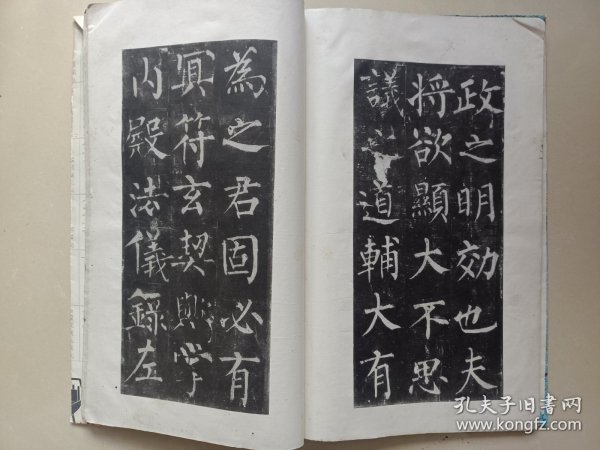 政之明効也夫
将欲顯大不思
議之道輔大有
為之君固必有
冥符玄契歟掌
内殿法儀録左
孔夫子旧书网
www.kongfz.com